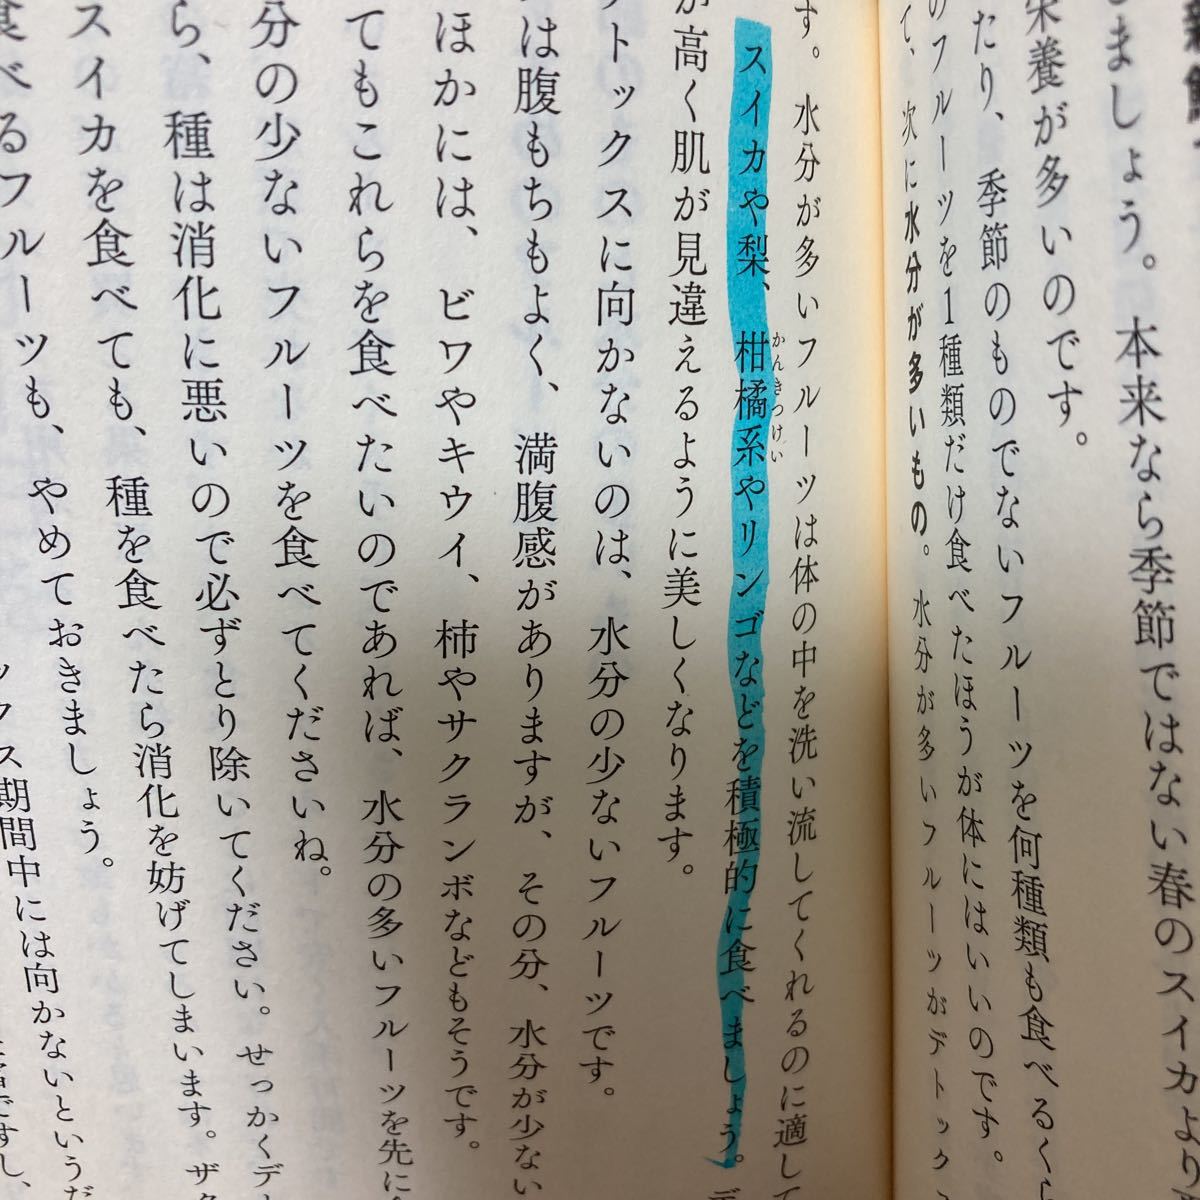 新鮮
しましょう。本来なら季節ではない春のスイカより
栄養が多いのです。
たり、季節のものでないフルーツを何種類も食べるく
のフルーツを1種類だけ食べたほうが体にはいいのです。
て、次に水分が多いもの。水分が多いフルーツがデトック
す。水分が多いフルーツは体の中を洗い流してくれるのに適して
スイカや梨、柑橘系やリンゴなどを積極的に食べましょう。デ
かんきつけい
が高く肌が見違えるように美しくなります。
トックスに向かないのは、水分の少ないフルーツです。
は腹もちもよく、満腹感がありますが、その分、水分が少ない
ほかには、ビワやキウイ、柿やサクランボなどもそうです。
てもこれらを食べたいのであれば、水分の多いフルーツを先に
分の少ないフルーツを食べてくださいね。
ら、種は消化に悪いので必ずとり除いてください。せっかくデ
スイカを食べても、種を食べたら消化を妨げてしまいます。ザク
食べるフルーツも、やめておきましょう。
ックス期間中には向かないというだ
ですし、